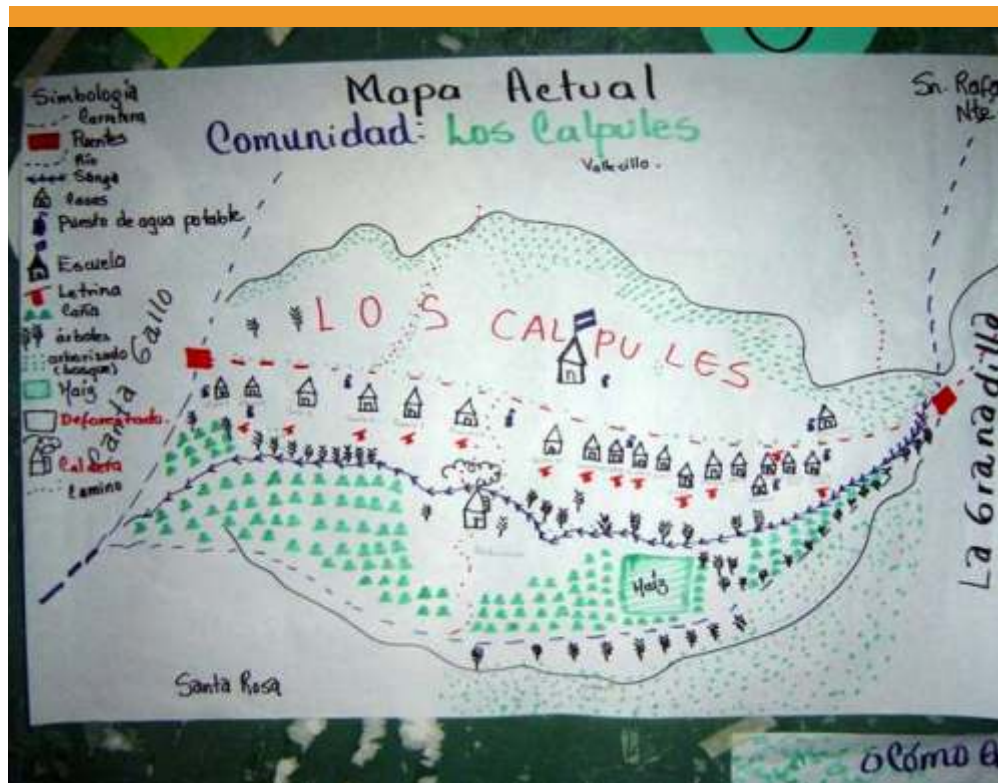 Mapa Actual
Comunidad: Los Calpules
Vallecillo.
Sn. Rafa
Nte
Simbología
Carretera
Puentes
Río
Sanja
Casas
Puesto de agua potable
Escuela
Letrina
Caña
árboles
arborizado
(bosque)
Maíz
Deforestado
Caldera
Camino
Santa Gallo
LOS CALPULES
Maíz
La Granadilla
Santa Rosa
¿Cómo e